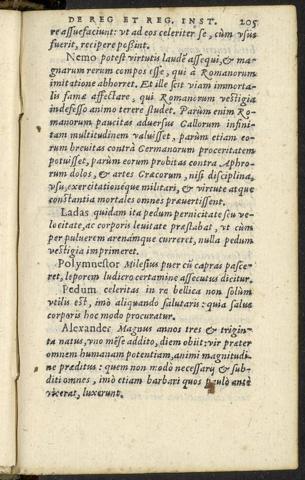 DE REG ET REG. INST. 205
re assuefaciunt: vt ad eos celeriter se, cùm vsus
fuerit, recipere possint.
Nemo potest virtutis laudẽ assequi, & ma-
gnarum rerum compos esse, qui à Romanorum
imitatione abhorret. Et ille scit viam immorta-
lis famæ affectare, qui Romanorum vestigia
indefesso animo terere studet. Parùm enim Ro-
manorum paucitas aduersus Gallorum infini-
tam multitudinem valuisset, parùm etiam eo-
rum breuitas contrà Germanorum proceritatem
potuisset, parùm eorum probitas contra Aphro-
rum dolos, & artes Græcorum, nisi disciplina,
vsu, exercitationéque militari, & virtute atque
constantia mortales omnes præuertissent.
Ladas quidam ita pedum pernicitate seu ve-
locitate, ac corporis leuitate præstabat, vt cùm
per puluerem arenámque curreret, nulla pedum
vestigia imprimeret.
Polymnestor Milesius puer cũ capras pasce-
ret, leporem ludiero certamine assecutus dicitur.
Pedum celeritas in re bellica non solùm
vtilis est, imò aliquando salutaris: quia salus
corporis hoc modo procuratur.
Alexander Magnus annos tres & trigin-
ta natus, vno mẽse addito, diem obiit: vir præter
omnem humanam potentiam, animi magnitudi-
ne præditus: quem non modò necessarij & sub-
diti omnes, imò etiam barbari quos paulò antè
vicerat, luxerunt.